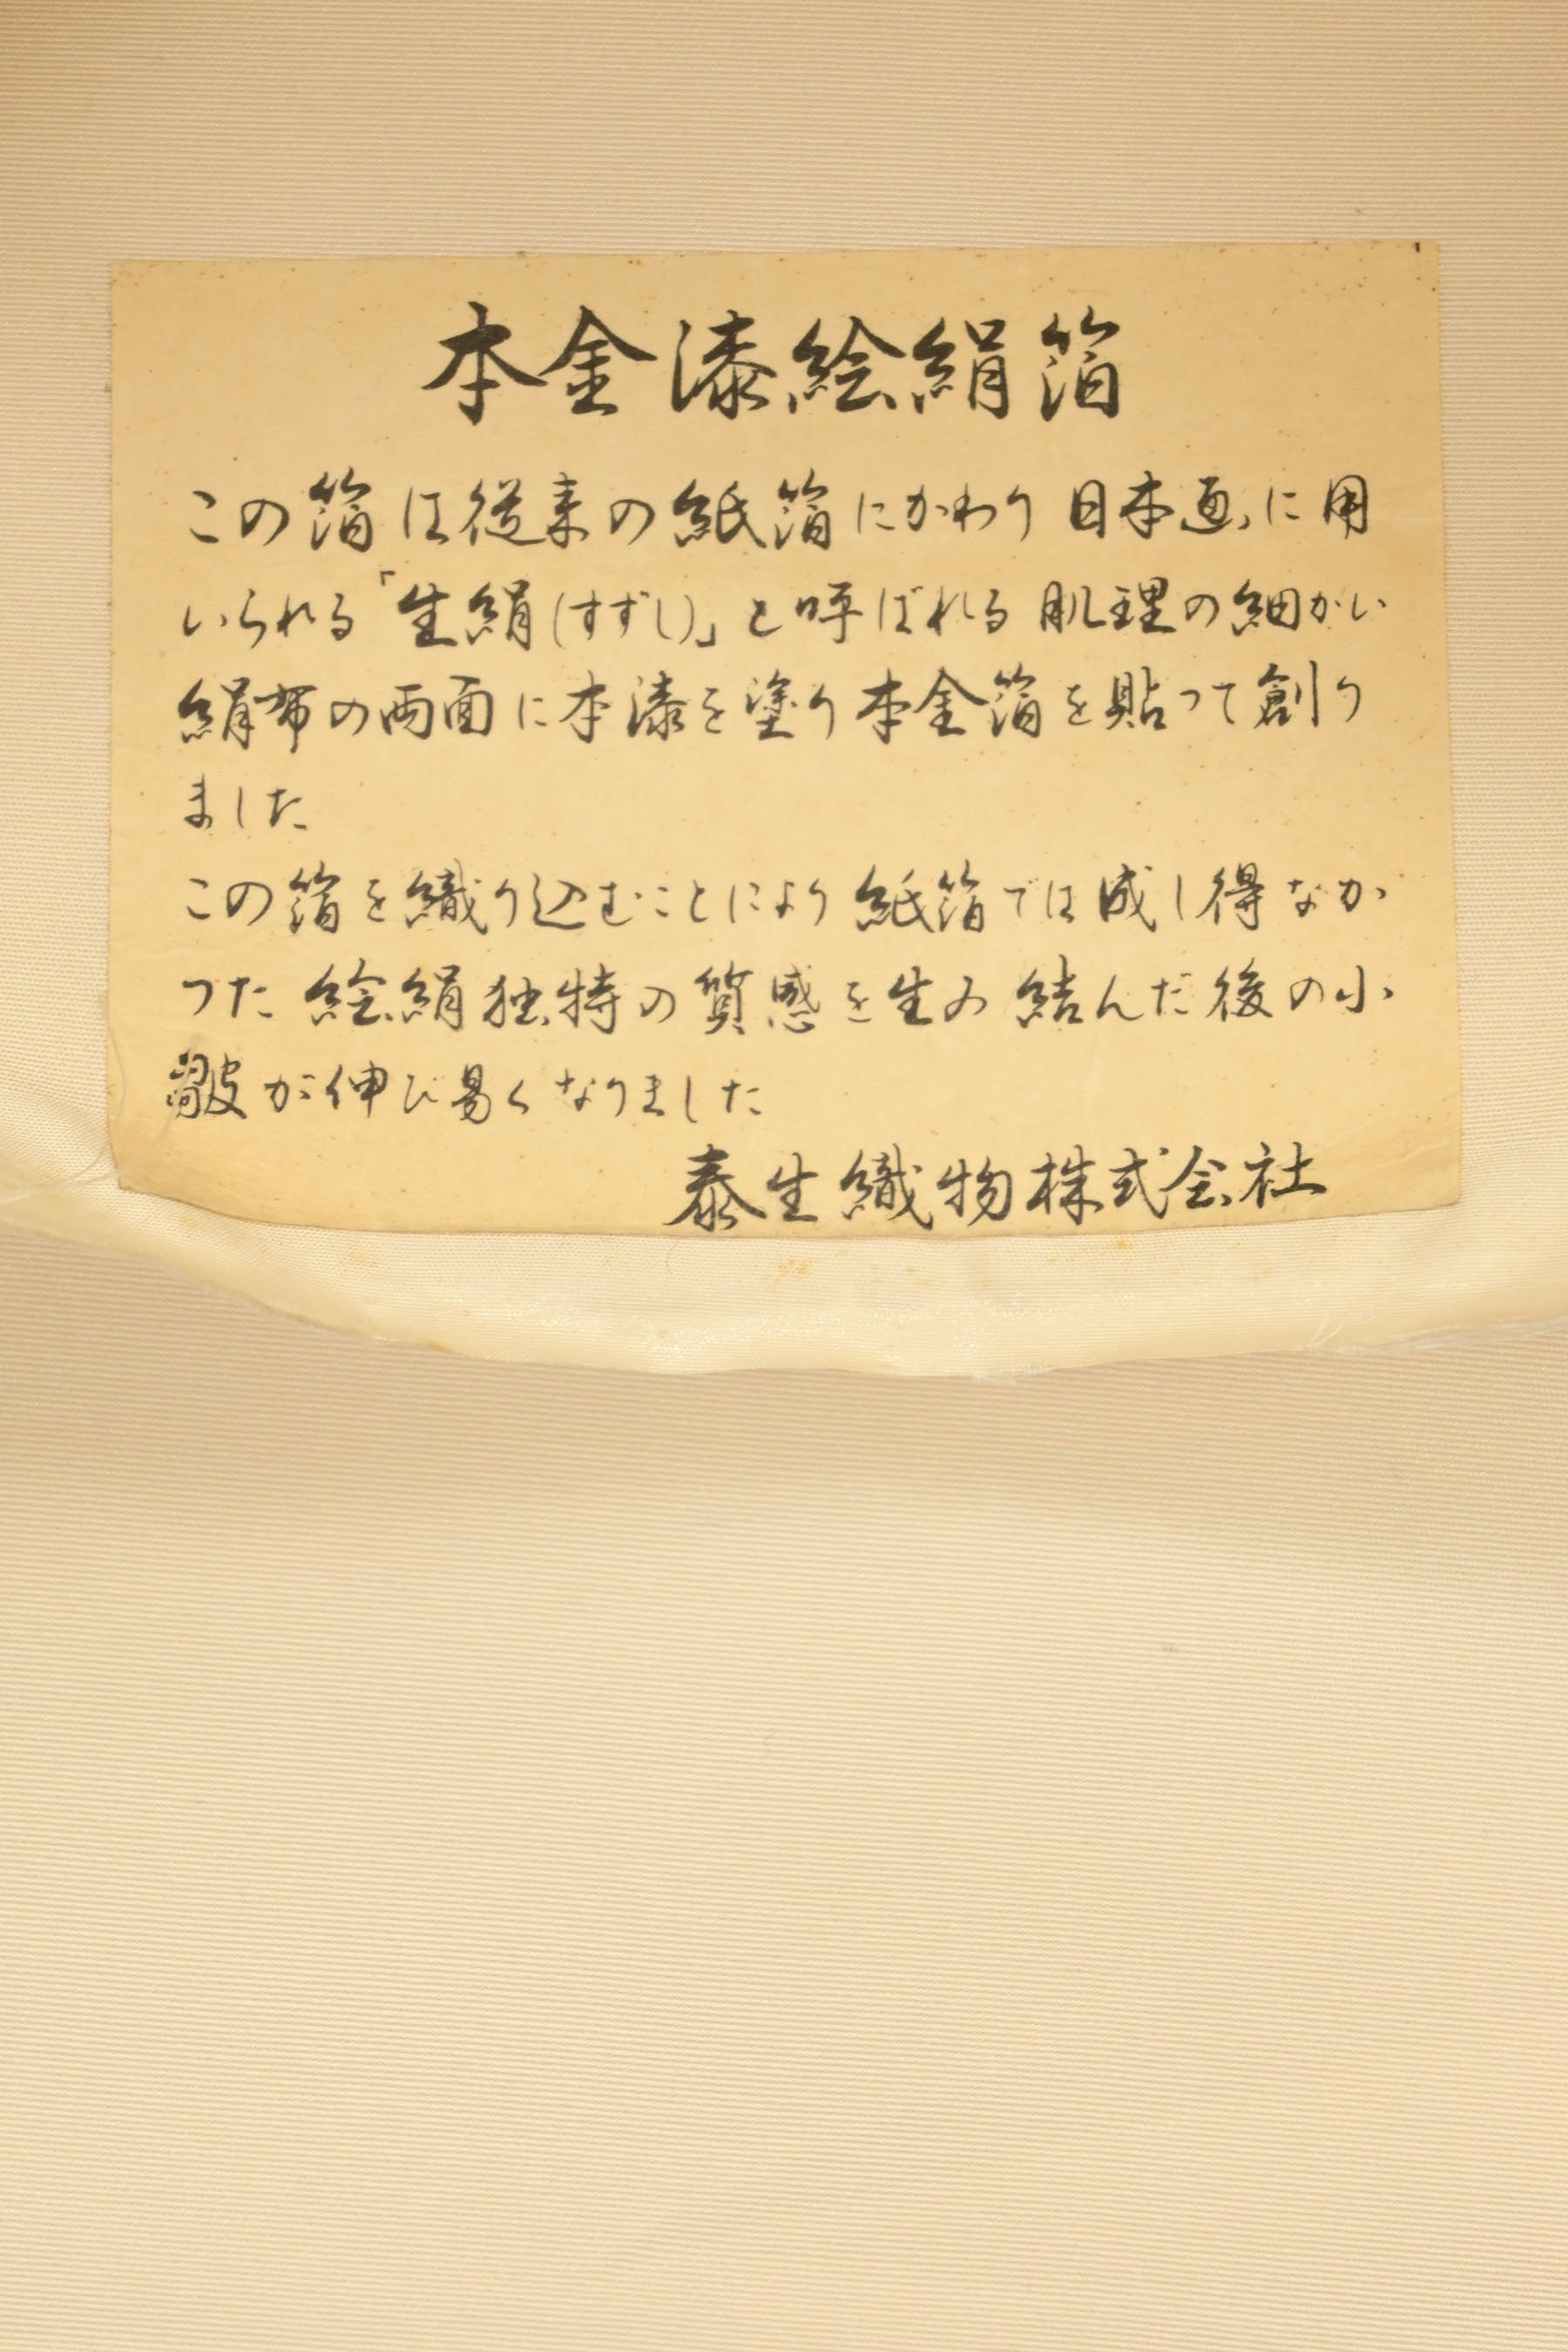 本金漆絵絹箔
この箔は従来の紙箔にかわり日本画に用
いられる「生絹(すずし)」と呼ばれる肌理の細かい
絹布の両面に本漆を塗り本金箔を貼って創り
ました
この箔を織り込むことにより紙箔では成し得なか
った絵絹独特の質感を生み結んだ後の小
皺が伸び易くなりました
泰生織物株式会社